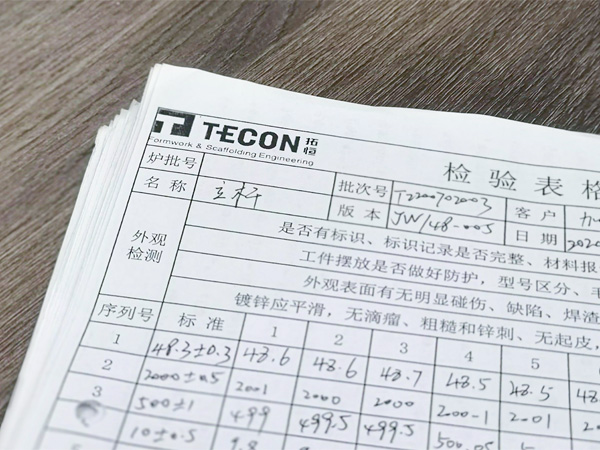 TECON 拓恒
Formwork & Scaffolding Engineering
检验表格
炉批号 批次号 T220702003 客户
名称 立杆 版本 JW/48-005 日期 2020
外观检测
是否有标识、标识记录是否完整、材料报
工件摆放是否做好防护，型号区分、毛
外观表面有无明显碰伤、缺陷、焊渣
镀锌应平滑，无滴瘤、粗糙和锌刺、无起皮，
序列号 标准 1 2 3 4 5 6
1 48.3±0.3 48.6 48.6 48.7 48.5 48.5 48
2 2000±0.5 2001 2000 2000 2000-1 2001 20
3 500±1 499 499.5 499.5 500.05
10±0.5 9.8